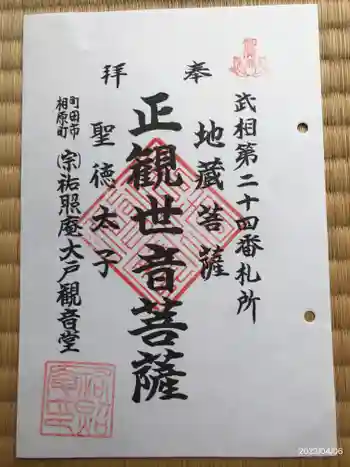 奉拝
武相第二十四番札所
地蔵菩薩
正観世音菩薩
聖徳太子
町田市
相原町
㊪祐照庵大戸観音堂
2023/04/06